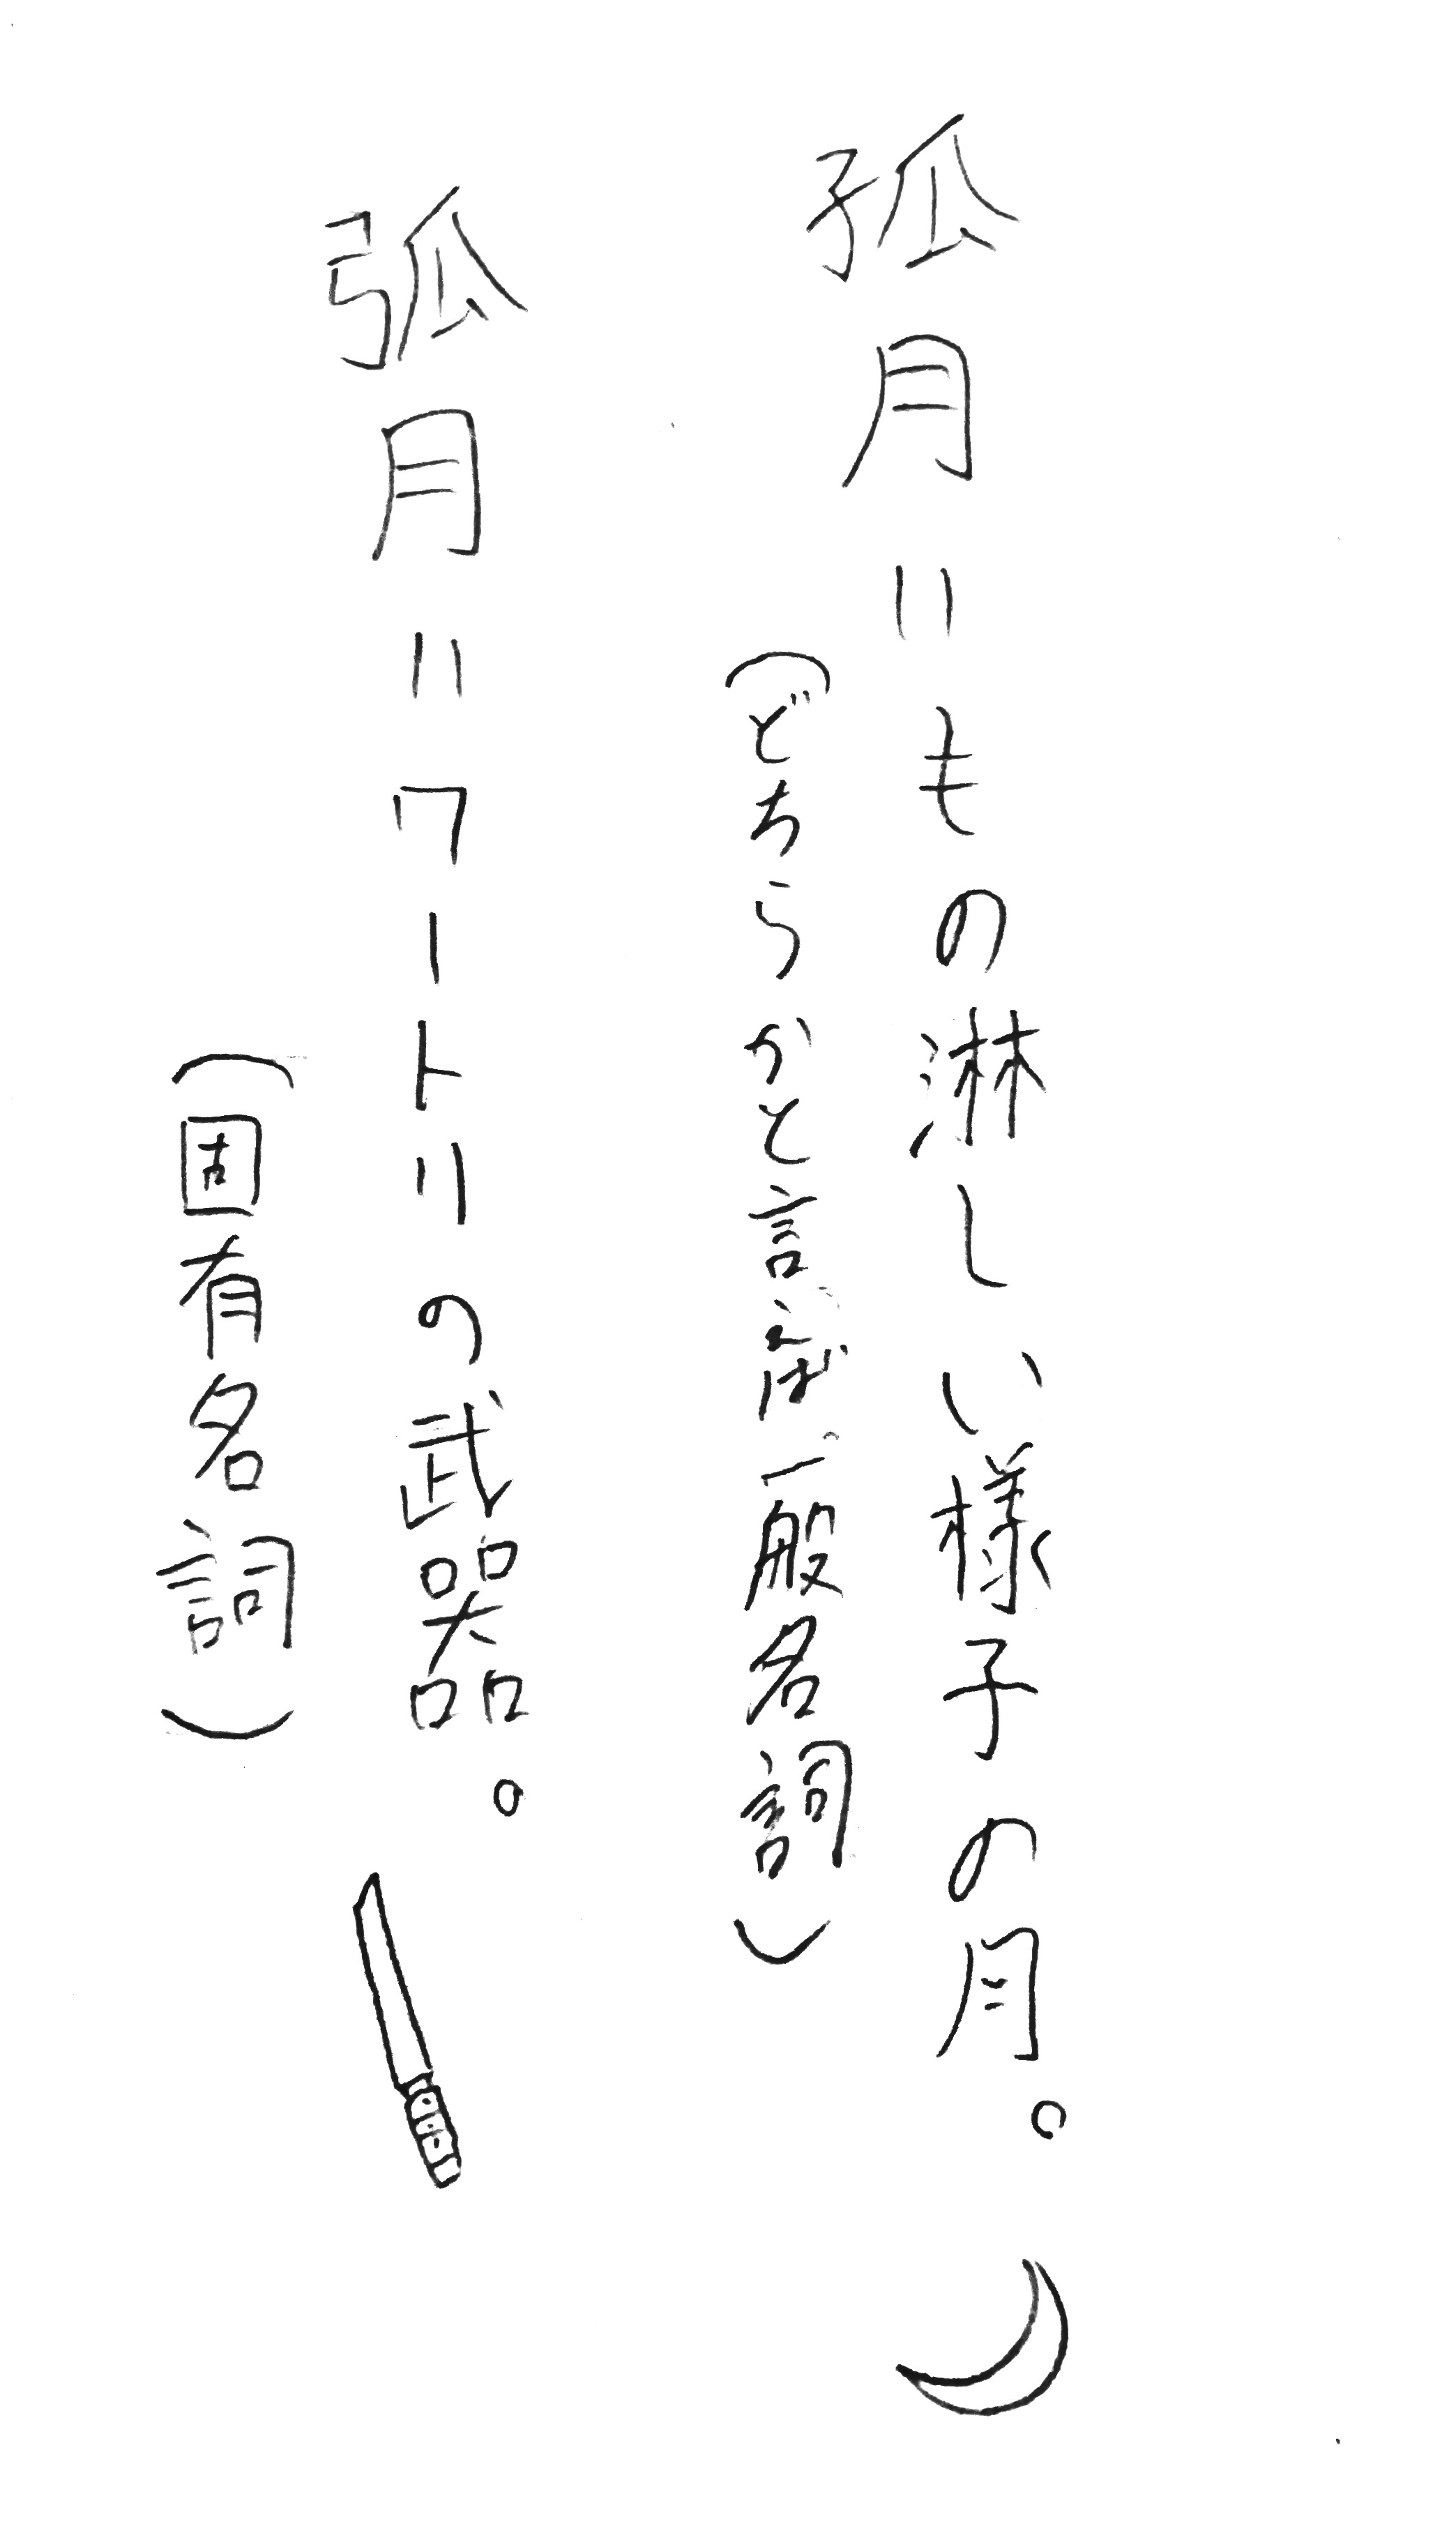 孤月＝もの淋しい様子の月。
(どちらかと言えば一般名詞)
弧月＝ワートリの武器。
(固有名詞)